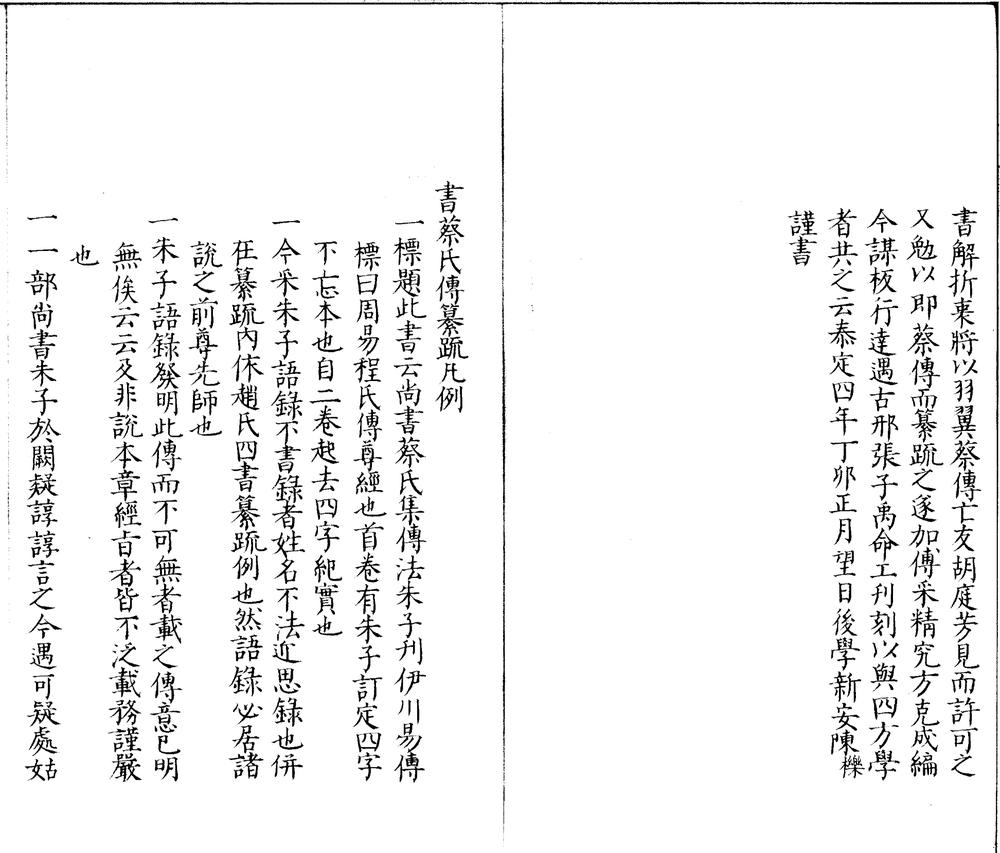 書解折衷將以羽翼蔡傳亡友胡庭芳見而許可之
又勉以即蔡傳而纂疏之遂加博采精究方克成編
今謀板行逹遇古邢張子禹命工刊刻以與四方學
者共之云泰定四年丁卯正月望日後學新安陳櫟
謹書
書蔡氏傳纂疏凡例
一標題此書云尚書蔡氏集傳法朱子刋伊川易傳
標曰周易程氏傳尊經也首卷有朱子訂定四字
不忘本也自二卷起去四字紀實也
一今采朱子語錄不書錄者姓名不法近思錄也併
在纂疏內依趙氏四書纂疏例也然語錄必居諸
說之前尊先師也
一朱子語錄發明此傳而不可無者載之傳意已明
無俟云云及非說本章經㫖者皆不泛載務謹嚴
也
一一部尚書朱子於闕疑諄諄言之今遇可疑處姑